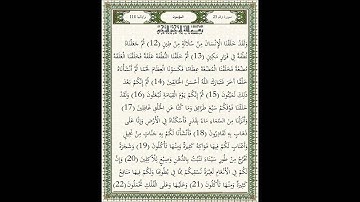 سورة رقم 23
المؤمنون
آياتها 118
وَلَقَدْ خَلَقْنَا الْإِنسَانَ مِن سُلَالَةٍ مِّن طِينٍ (12) ثُمَّ جَعَلْنَاهُ
نُطْفَةً فِي قَرَارٍ مَّكِينٍ (13) ثُمَّ خَلَقْنَا النُّطْفَةَ عَلَقَةً فَخَلَقْنَا
الْعَلَقَةَ مُضْغَةً فَخَلَقْنَا الْمُضْغَةَ عِظَامًا فَكَسَوْنَا الْعِظَامَ لَحْمًا ثُمَّ أَنشَأْنَاهُ
خَلْقًا آخَرَ فَتَبَارَكَ اللَّهُ أَحْسَنُ الْخَالِقِينَ (14) ثُمَّ إِنَّكُم بَعْدَ
ذَلِكَ لَمَيِّتُونَ (15) ثُمَّ إِنَّكُمْ يَوْمَ الْقِيَامَةِ تُبْعَثُونَ (16) وَلَقَدْ
خَلَقْنَا فَوْقَكُمْ سَبْعَ طَرَائِقَ وَمَا كُنَّا عَنِ الْخَلْقِ غَافِلِينَ (17)
وَأَنزَلْنَا مِنَ السَّمَاءِ مَاءً بِقَدَرٍ فَأَسْكَنَّاهُ فِي الْأَرْضِ وَإِنَّا عَلَى
ذَهَابٍ بِهِ لَقَادِرُونَ (18) فَأَنشَأْنَا لَكُم بِهِ جَنَّاتٍ مِّن نَّخِيلٍ
وَأَعْنَابٍ لَّكُمْ فِيهَا فَوَاكِهُ كَثِيرَةٌ وَمِنْهَا تَأْكُلُونَ (19) وَشَجَرَةً
تَخْرُجُ مِن طُورِ سَيْنَاءَ تَنبُتُ بِالدُّهْنِ وَصِبْغٍ لِّلْآكِلِينَ (20) وَإِنَّ
لَكُمْ فِي الْأَنْعَامِ لَعِبْرَةً نُّسْقِيكُم مِّمَّا فِي بُطُونِهَا وَلَكُمْ فِيهَا مَنَافِعُ
كَثِيرَةٌ وَمِنْهَا تَأْكُلُونَ (21) وَعَلَيْهَا وَعَلَى الْفُلْكِ تُحْمَلُونَ (22)